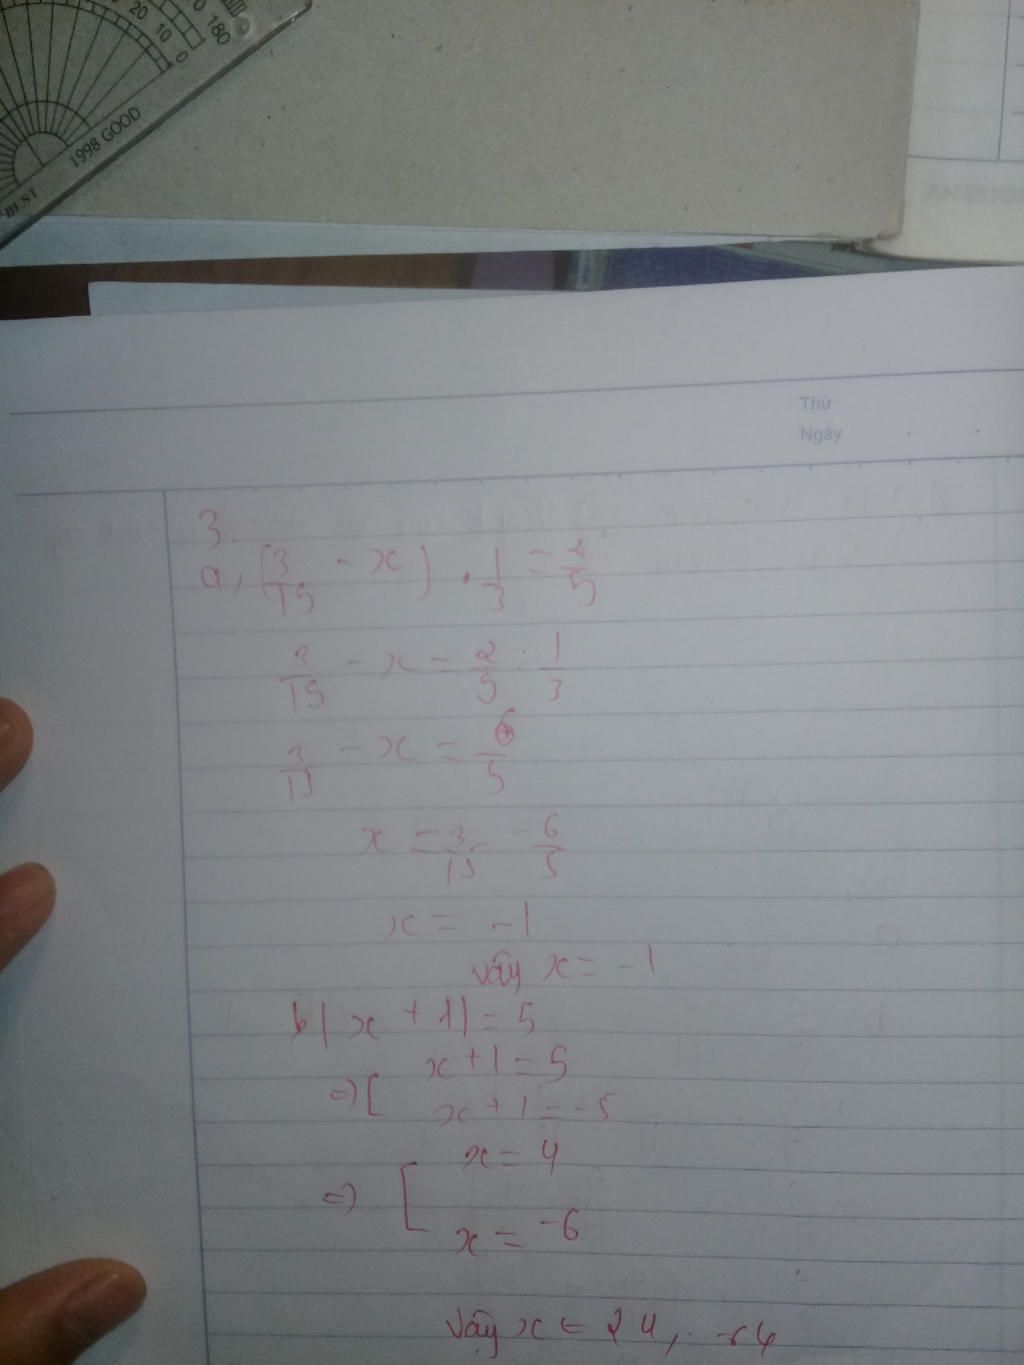 180
20
10
0
1998 GOOD
Thứ
Ngày
3.
a, (3/15 - x) . 1/3 = 2/5
3/15 - x = 2/5 : 1/3
3/15 - x = 6/5
x = 3/15 - 6/5
x = -1
Vậy x = -1
b |x + 1| = 5
x + 1 = 5
=> [ x + 1 = -5
x = 4
=> [
x = -6
Vậy x ∈ { 4, -6 }